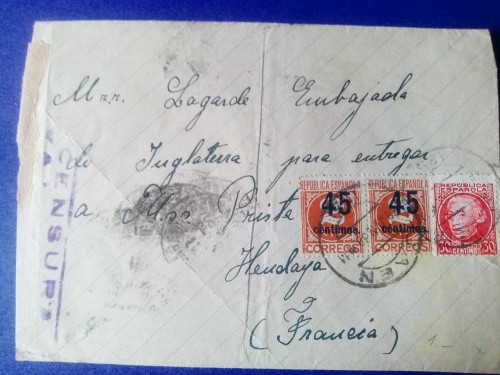 Mrr. Lagarde Embajada
de Inglaterra para entregar
a Miss Priste
Hendaya
(Francia)
CENSURA
REPUBLICA ESPAÑOLA
45
centimos.
CORREOS
REPUBLICA ESPAÑOLA
45
centimos.
CORREOS
REPUBLICA
ESPAÑOLA
30
30
JAEN
1.-